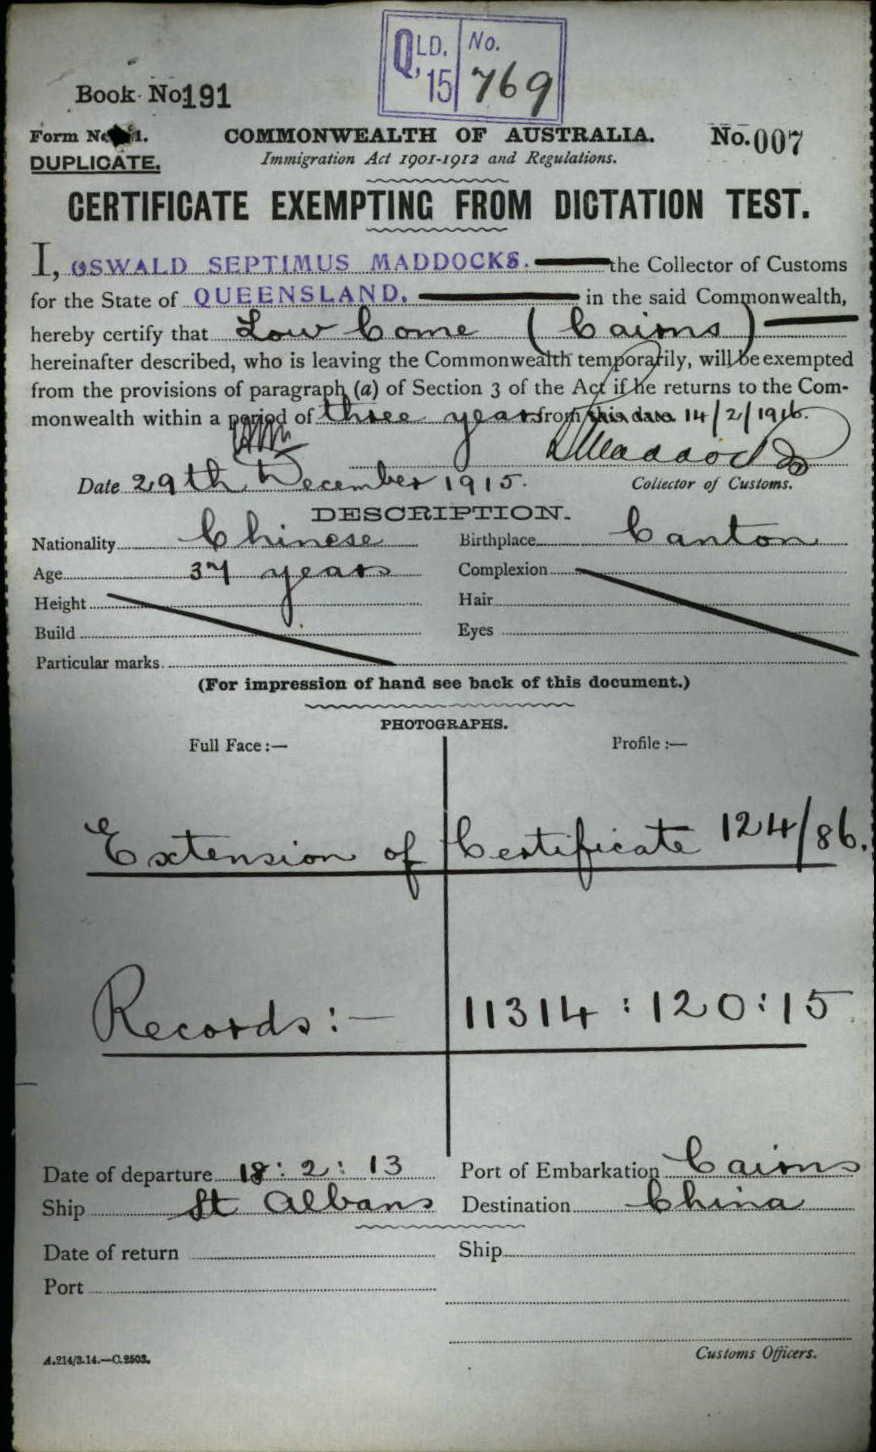 QLD. No.
'15 769
Book No. 191
Form No. 21.
COMMONWEALTH OF AUSTRALIA.
No. 007
DUPLICATE.
Immigration Act 1901-1912 and Regulations.
CERTIFICATE EXEMPTING FROM DICTATION TEST.
I, OSWALD SEPTIMUS MADDOCKS. the Collector of Customs
for the State of QUEENSLAND. in the said Commonwealth,
hereby certify that Low Come (Cairns)
hereinafter described, who is leaving the Commonwealth temporarily, will be exempted
from the provisions of paragraph (a) of Section 3 of the Act if he returns to the Com-
monwealth within a period of three years from this date 14/2/1916.
OSMaddocks
Date 29th December 1915. Collector of Customs.
DESCRIPTION.
Nationality Chinese Birthplace Canton
Age 37 years Complexion
Height Hair
Build Eyes
Particular marks.
(For impression of hand see back of this document.)
PHOTOGRAPHS.
Full Face:— Profile:—
Extension of Certificate 124/86.
Records:— 11314:120:15
Date of departure 18:2:13 Port of Embarkation Cairns
Ship St Albans Destination China
Date of return Ship
Port
A.214/3.14.—C.2503. Customs Officers.